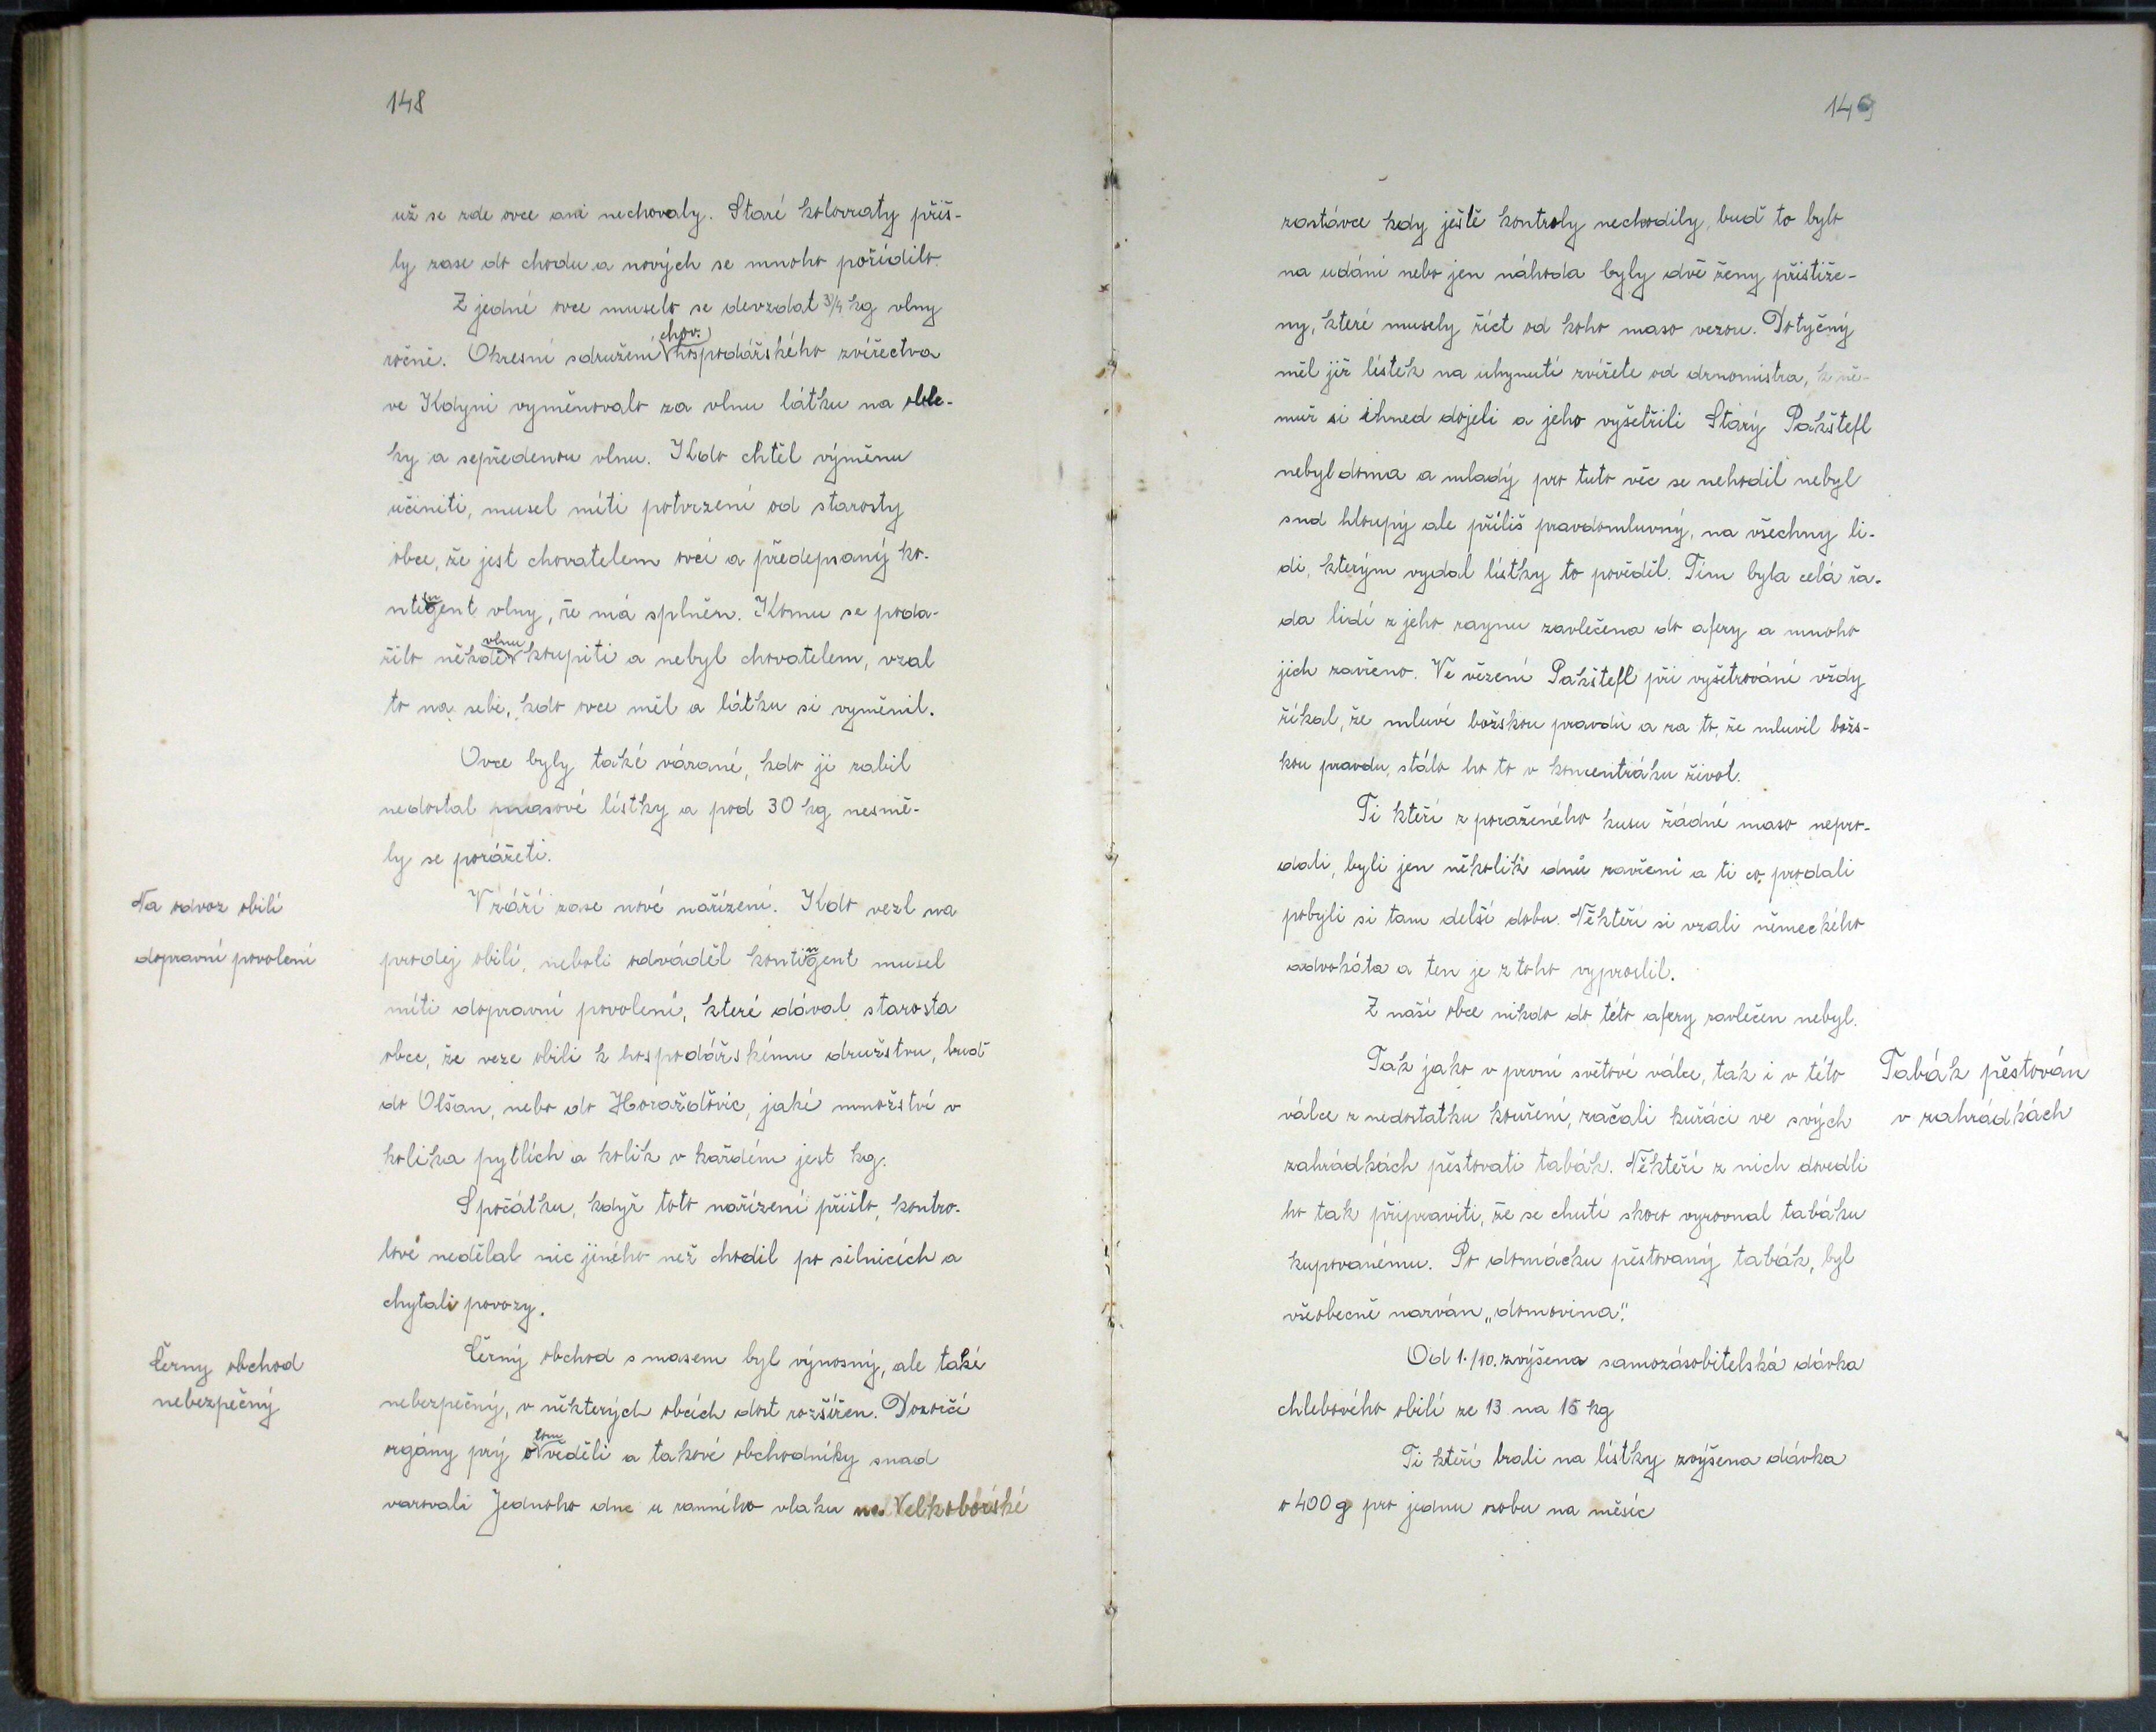 148
už se zde ovce ani nechovaly. Staré kolovraty přiš-
ly zase do chodu a nových se mnoho pořídilo.
Z jedné ovce muselo se devzdat 3/4 kg vlny
chov.
ročně. Okresní sdružení hospodářského zvířectva
ve Kdyni vyměnovalo za vlnu látku na oble-
ky a sepředenou vlnu. Kdo chtěl výměnu
učiniti, musel míti potvrzení od starosty
obce, že jest chovatelem ovcí a předepsaný ko-
ntingent vlny, že má splněn. Komu se poda-
vlnu
řilo někde koupiti a nebyl chovatelem, vzal
to na sebe, kdo ovce měl a látku si vyměnil.
Ovce byly také vázané, kdo ji zabil
nedostal masové lístky a pod 30 kg nesmě-
ly se porážeti.
Na odvoz obilí
dopravní povolení
V září zase nové nařízení. Kdo vezl na
prodej obilí, neboli odváděl kontingent musel
míti dopravní povolení, které dával starosta
obce, že veze obilí k hospodářskému družstvu, buď
do Olšan, nebo do Horažďovic, jaké množství v
kolika pytlích a kolik v každém jest kg.
Spočátku, když toto nařízení přišlo, kontro-
lové nedělal nic jiného než chodil po silnicích a
chytali povozy.
Černy obchod
nebezpečný
Černý obchod s masem byl výnosný, ale také
nebezpečný, v některých obcích dost rozšířen. Dozorčí
tom
orgány prý o věděli a takové obchodníky snad
varovali Jednoho dne u ranního vlaku na Velkoborské
149
zastávce kdy ještě kontroly nechodily, buď to bylo
na udání nebo jen náhoda byly dvě ženy přistiže-
ny, které musely říct od koho maso vezou. Dotyčný
měl již lístek na uhynutí zvířete od drnomistra, k ně-
muž si ihned dojeli a jeho vyšetřili Starý Pakštefl
nebyl doma a mladý pro tuto věc se nehodil nebyl
snd hloupý ale příliš pravdomluvný, na všechny li-
di, kterým vydal lístky to pověděl. Tím byla celá řa-
da lidí z jeho raynu zavlečena do afery a mnoho
jich zavřeno. Ve vězení Pakštefl při vyšetrování vždy
říkal, že mluví božskou pravdu a za to, že mluvil božs-
kou pravdu, stálo ho to v koncentráku život.
Ti kteří z poraženého kusu žádné maso nepro-
dali, byli jen několik dnů zavřeni a ti co prodali
pobyli si tam delší dobu. Někteří si vzali německého
advokáta a ten je z toho vyprostil.
Z naší obce nikdo do této afery zavlečen nebyl.
Tabák pěstován
v zahrádkách
Tak jako v první světové válce, tak i v této
válce z nedostatku kouření, začali kuřáci ve svých
zahrádkách pěstovati tabák. Někteří z nich dovedli
ho tak připraviti, že se chutí skoro vyrovnal tabáku
kupovanému. Po domácku pěstovaný tabák, byl
všeobecně nazván „domovina".
Od 1./10. zvýšena samozásobitelská dávka
chlebového obilí ze 13 na 15 kg
Ti kteří brali na lístky zvýšena dávka
o 400 g pro jednu osobu na měsíc